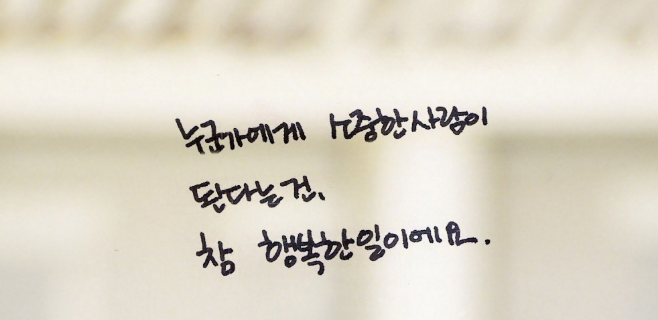 누군가에게 소중한 사람이
된다는 건,
참 행복한 일이에요.